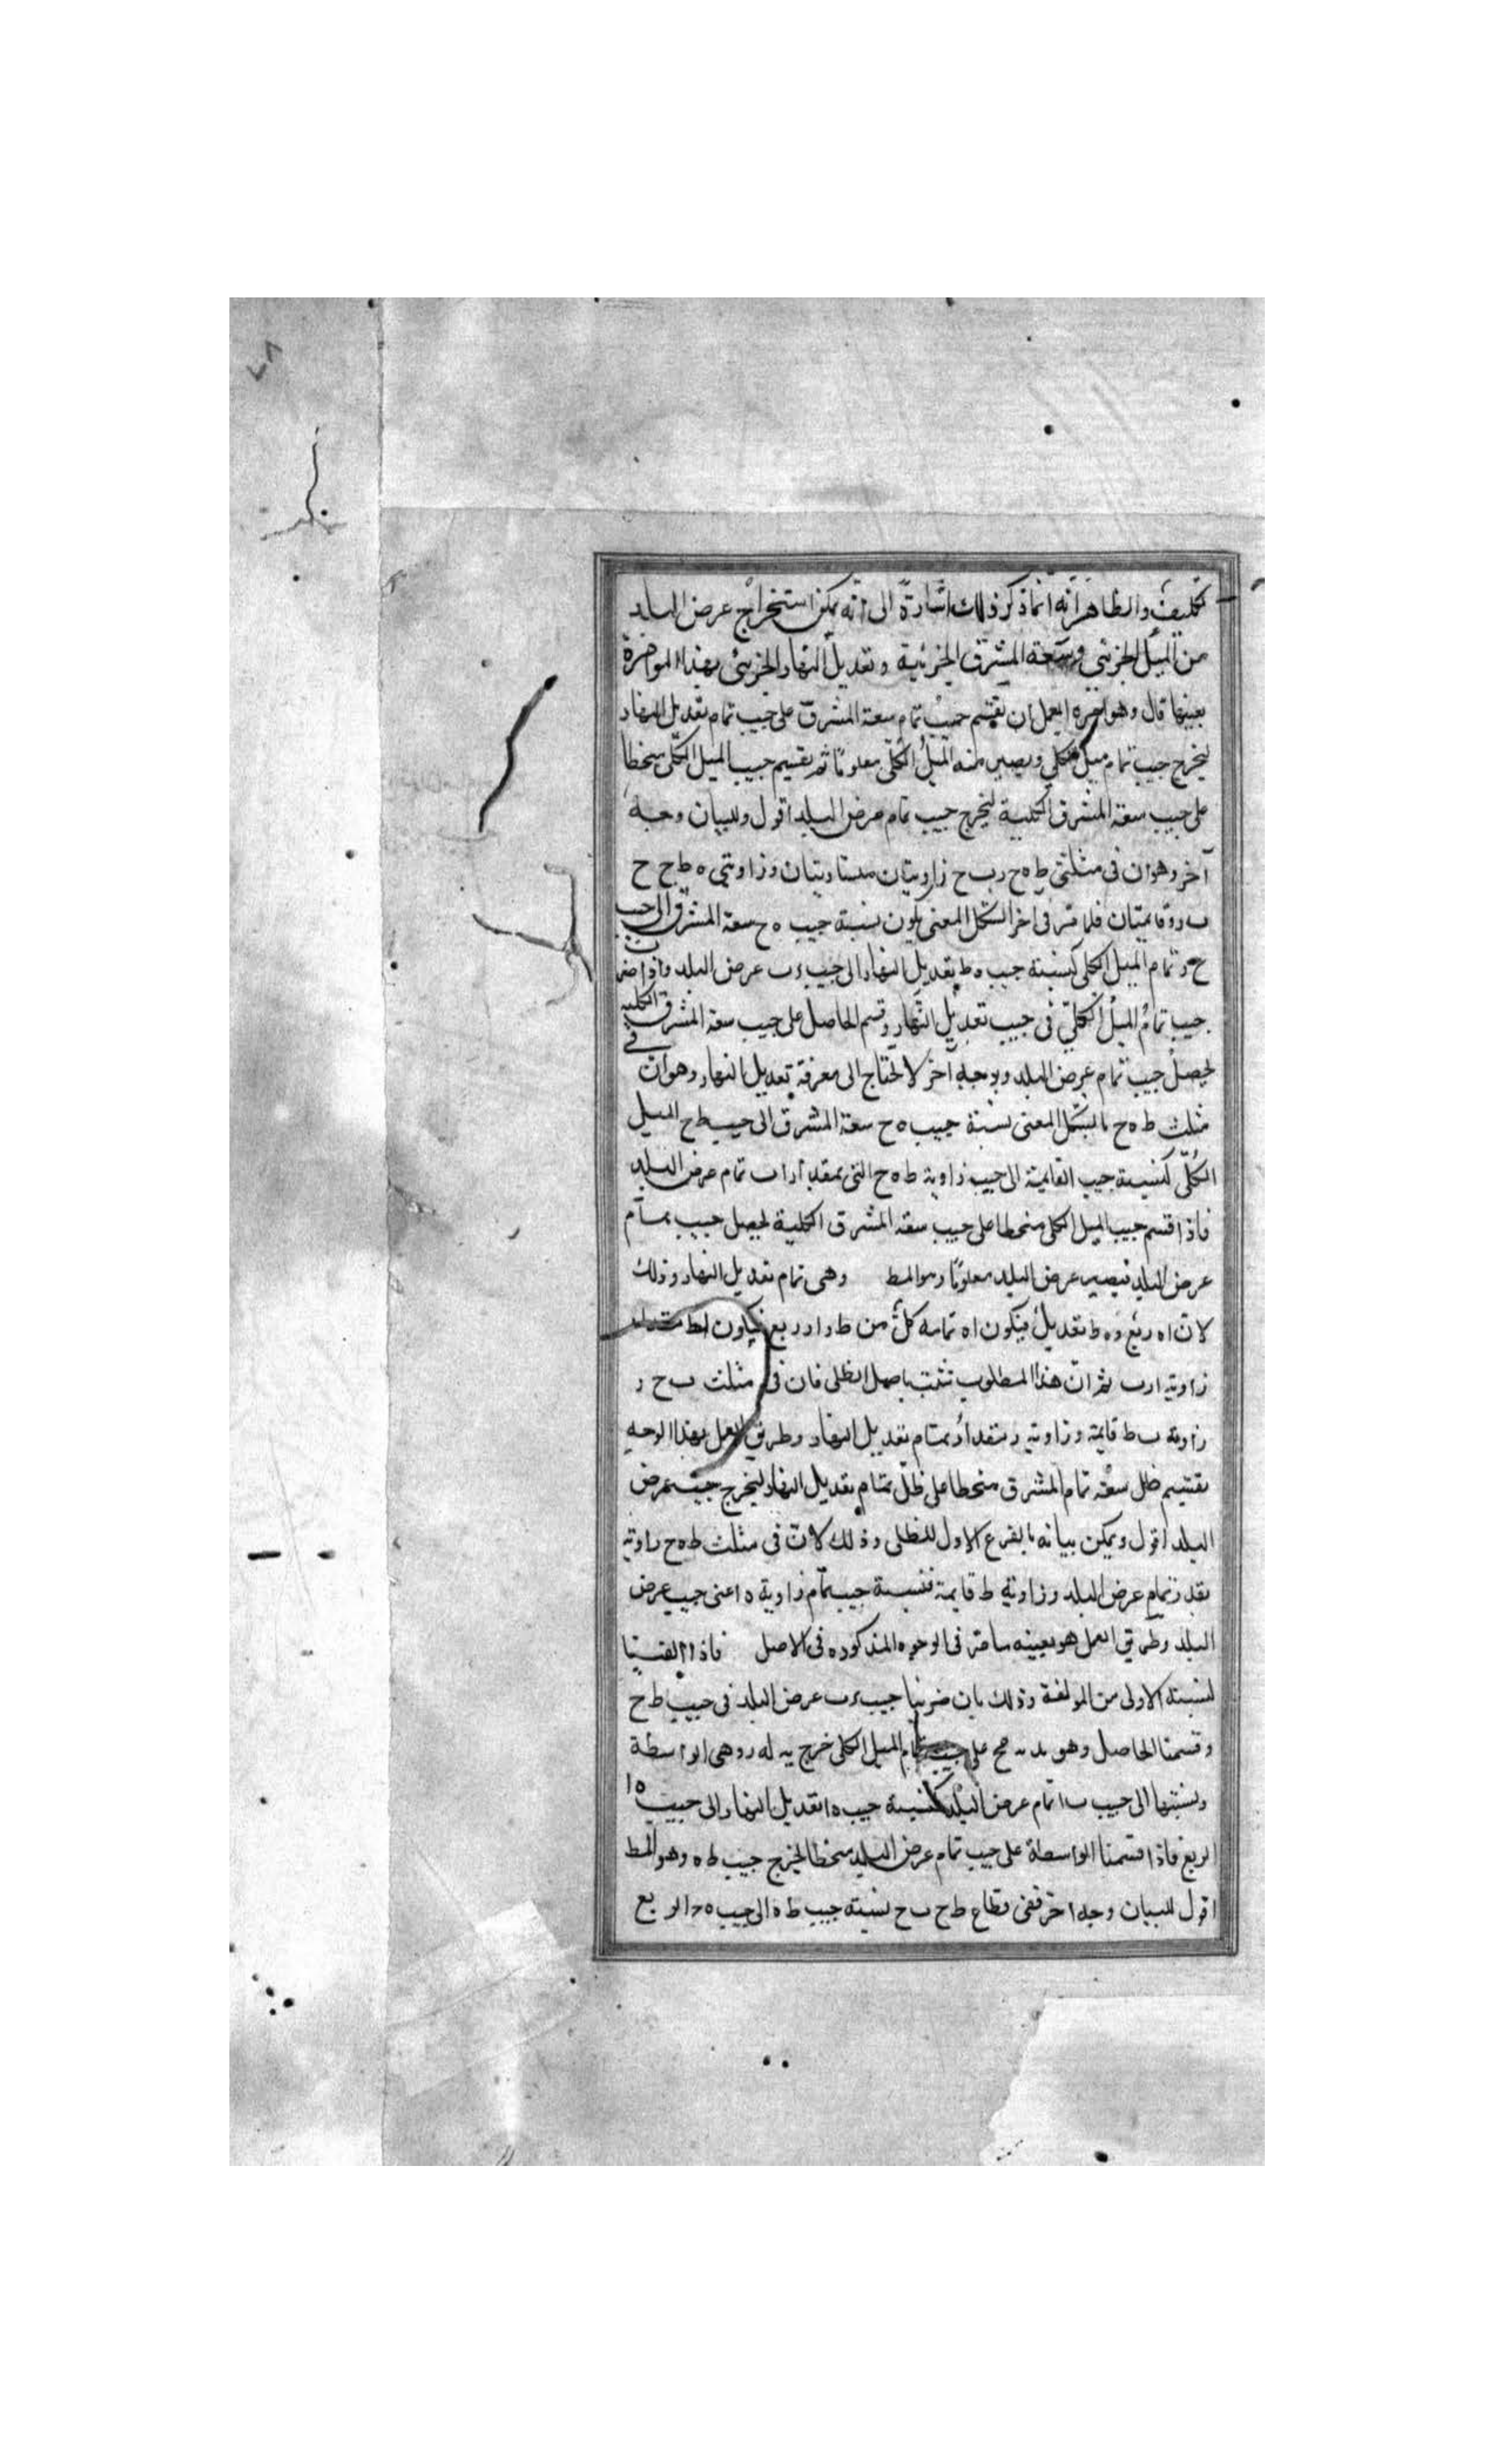 تكليف والظاهر انه انما ذكر ذلك اشارة الى انه يمكن استخراج عرض البلد
من الميل الجزئي وسعة المشرق الجزئية وتعديل النهار الجزئي بهذا المؤامرة
بعينها قال وهو العمل ان يقسم جيب تمام سعة المشرق على جيب تمام تعديل النهار
ليخرج جيب تمام ميل كلي ويصير منه الميل الكلي معلوما ثم يقسم جيب الميل الكلي منحطا
على جيب سعة المشرق الكلية ليخرج جيب تمام عرض البلد اقول وللبيان وجه
آخر وهو ان فى مثلثى ط ه ح ر ب ح زاويتان متساويتان وزاويتي ه ط ح ح
ب ر قايمتان فلما مر فى اخر الشكل المغنى يكون نسبة جيب ه ح سعة المشرق الى جيب
ح ر تمام الميل الكلى كنسبة جيب ه ط تعديل النهار الى جيب ر ب عرض البلد واذا ضرب
جيب تمام الميل الكلي فى جيب تعديل النهار وقسم الحاصل على جيب سعة المشرق الكلية
ليحصل جيب تمام عرض البلد وبوجه آخر لا يحتاج الى معرفة تعديل النهار وهو ان فى
مثلث ط ه ح بالشكل المغنى نسبة جيب ه ح سعة المشرق الى جيب ط ح الميل
الكلي كنسبة جيب القايمة الى جيب زاوية ط ه ح التى بمقدار ا ب تمام عرض البلد
فاذا قسم جيب الميل الكلى منحطا على جيب سعة المشرق الكلية ليحصل جيب تمام
عرض البلد فيصير عرض البلد معلوما وهو المط وهى تمام تعديل النهار وذلك
لان ا ه ربع و ه ط تعديل فيكون ا ه تمامه كل من ط ر ا ر ربع فيكون ا ط مقدار
زاوية ا ر ب ثم ان هذا المطلوب تثبت باصل الظلى فان فى مثلث ب ح ر
زاوية ب ط قايمة وزاوية ر بمقدار تمام تعديل النهار وطريق العمل بهذا الوجه
يقسم ظل سعة تمام المشرق منحطا على ظل تمام تعديل النهار ليخرج جيب عرض
البلد اقول ويمكن بيانه بالفرع الاول للظلى وذلك لان فى مثلث ط ه ح زاوية
بقدر تمام عرض البلد وزاوية ط قايمة فنسبة جيب تمام زاوية ه اعنى جيب عرض
البلد وطريق العمل هو بعينه ما مر فى الوجوه المذكوره فى الاصل فاذا القينا
لنسبة الاولى من المولفة وذلك بان ضربنا جيب ر ب عرض البلد فى جيب ط ح
وقسمنا الحاصل وهو على جيب تمام الميل الكلى خرج يه له ر وهى الواسطة
ونسبتها الى جيب ب ا تمام عرض البلد كنسبة جيب ه ا تعديل النهار الى جيب ه ا
الربع فاذا قسمنا الواسطة على جيب تمام عرض البلد منحطا ليخرج جيب ط ه وهو المط
اقول للبيان وجه اخر ففى قطاع ط ح ب ح نسبة جيب ط ه الى جيب ه ا الربع